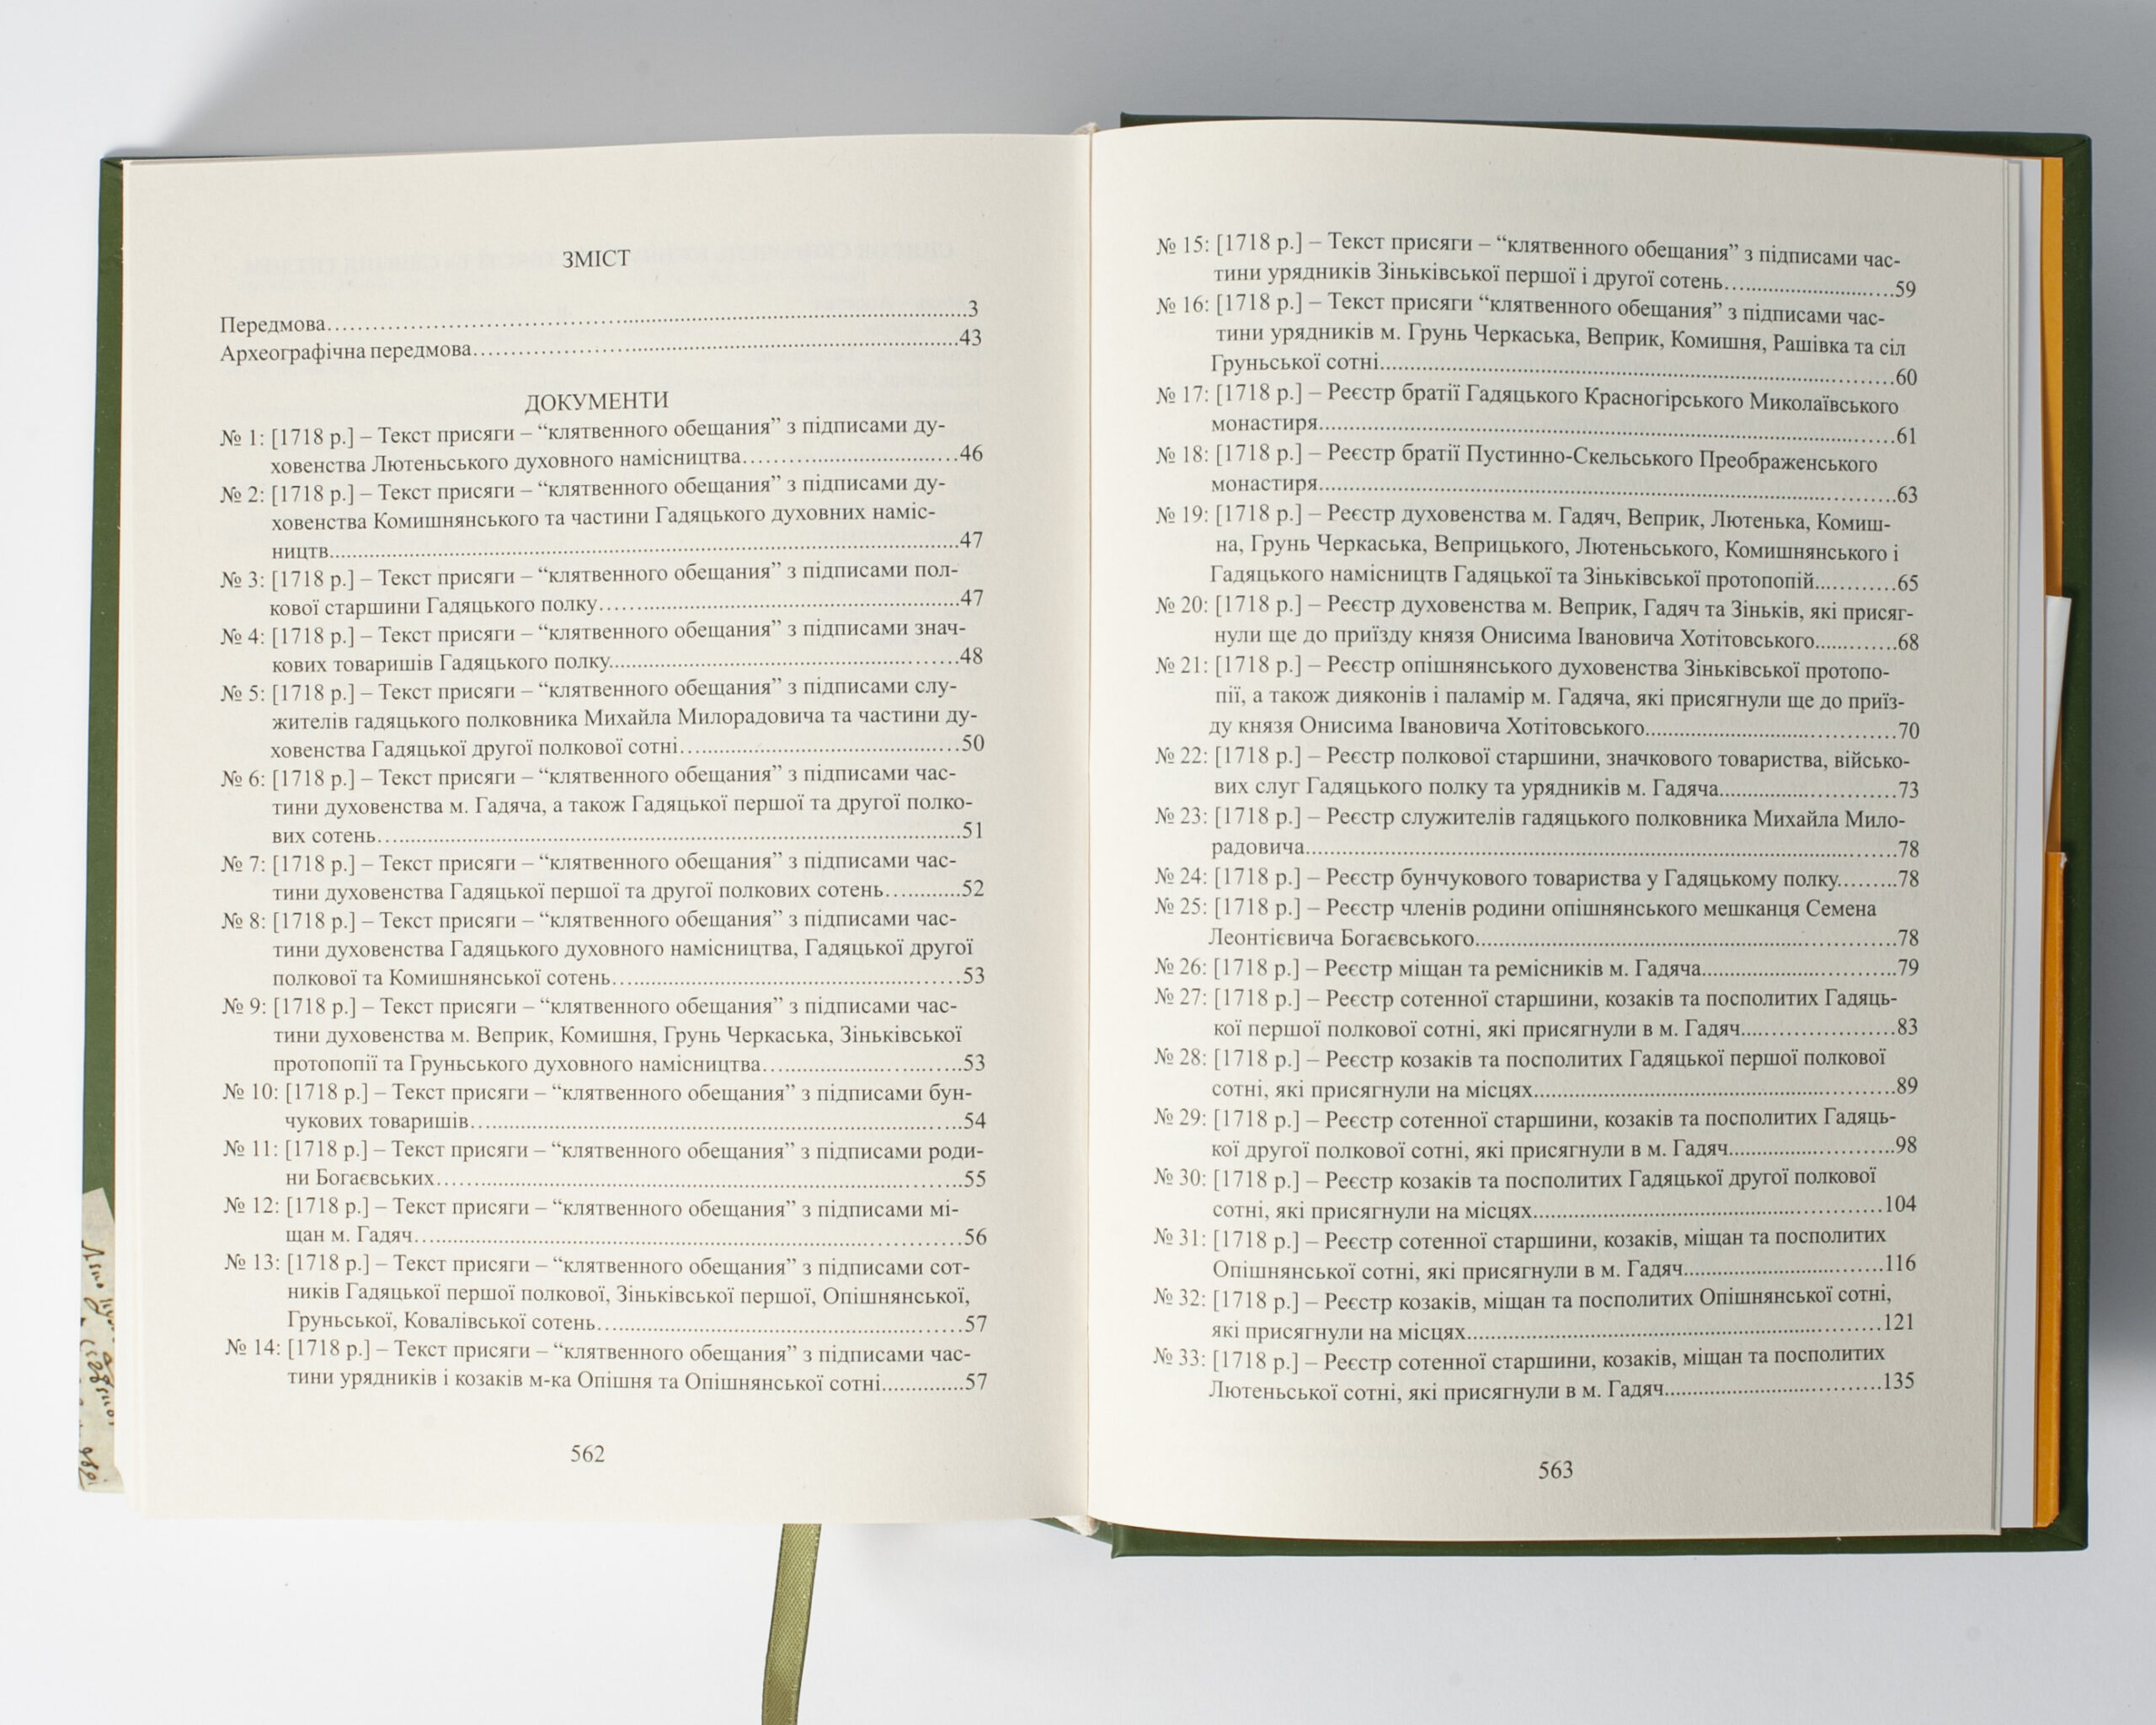 ЗМІСТ
Передмова....................3
Археографічна передмова....................43
ДОКУМЕНТИ
№ 1: [1718 р.] – Текст присяги – “клятвенного обещания” з підписами ду-
ховенства Лютенського духовного намісництва....................46
№ 2: [1718 р.] – Текст присяги – “клятвенного обещания” з підписами ду-
ховенства Комишнянського та частини Гадяцького духовних наміс-
ництв....................47
№ 3: [1718 р.] – Текст присяги – “клятвенного обещания” з підписами пол-
кової старшини Гадяцького полку....................47
№ 4: [1718 р.] – Текст присяги – “клятвенного обещания” з підписами знач-
кових товаришів Гадяцького полку....................48
№ 5: [1718 р.] – Текст присяги – “клятвенного обещания” з підписами слу-
жителів гадяцького полковника Михайла Милорадовича та частини ду-
ховенства Гадяцької другої полкової сотні....................50
№ 6: [1718 р.] – Текст присяги – “клятвенного обещания” з підписами час-
тини духовенства м. Гадяча, а також Гадяцької першої та другої полко-
вих сотень....................51
№ 7: [1718 р.] – Текст присяги – “клятвенного обещания” з підписами час-
тини духовенства Гадяцької першої та другої полкових сотень............52
№ 8: [1718 р.] – Текст присяги – “клятвенного обещания” з підписами час-
тини духовенства Гадяцького духовного намісництва, Гадяцької другої
полкової та Комишнянської сотень....................53
№ 9: [1718 р.] – Текст присяги – “клятвенного обещания” з підписами час-
тини духовенства м. Веприк, Комишня, Грунь Черкаська, Зіньківської
протопопії та Груньського духовного намісництва....................53
№ 10: [1718 р.] – Текст присяги – “клятвенного обещания” з підписами бун-
чукових товаришів....................54
№ 11: [1718 р.] – Текст присяги – “клятвенного обещания” з підписами роди-
ни Богаєвських....................55
№ 12: [1718 р.] – Текст присяги – “клятвенного обещания” з підписами мі-
щан м. Гадяч....................56
№ 13: [1718 р.] – Текст присяги – “клятвенного обещания” з підписами сот-
ників Гадяцької першої полкової, Зіньківської першої, Опішнянської,
Груньської, Ковалівської сотень....................57
№ 14: [1718 р.] – Текст присяги – “клятвенного обещания” з підписами час-
тини урядників і козаків м-ка Опішня та Опішнянської сотні.............57
562
№ 15: [1718 р.] – Текст присяги – “клятвенного обещания” з підписами час-
тини урядників Зіньківської першої і другої сотень....................59
№ 16: [1718 р.] – Текст присяги “клятвенного обещания” з підписами час-
тини урядників м. Грунь Черкаська, Веприк, Комишня, Рашівка та сіл
Груньської сотні....................60
№ 17: [1718 р.] – Реєстр братії Гадяцького Красногірського Миколаївського
монастиря....................61
№ 18: [1718 р.] – Реєстр братії Пустинно-Скельського Преображенського
монастиря....................63
№ 19: [1718 р.] – Реєстр духовенства м. Гадяч, Веприк, Лютенька, Комиш-
на, Грунь Черкаська, Веприцького, Лютеньського, Комишнянського і
Гадяцького намісництв Гадяцької та Зіньківської протопопій............65
№ 20: [1718 р.] – Реєстр духовенства м. Веприк, Гадяч та Зіньків, які присяг-
нули ще до приїзду князя Онисима Івановича Хотітовського.............68
№ 21: [1718 р.] – Реєстр опішнянського духовенства Зіньківської протопо-
пії, а також дияконів і паламір м. Гадяча, які присягнули ще до приїз-
ду князя Онисима Івановича Хотітовського....................70
№ 22: [1718 р.] – Реєстр полкової старшини, значкового товариства, військо-
вих слуг Гадяцького полку та урядників м. Гадяча....................73
№ 23: [1718 р.] – Реєстр служителів гадяцького полковника Михайла Мило-
радовича....................78
№ 24: [1718 р.] – Реєстр бунчукового товариства у Гадяцькому полку.........78
№ 25: [1718 р.] – Реєстр членів родини опішнянського мешканця Семена
Леонтієвича Богаєвського....................78
№ 26: [1718 р.] – Реєстр міщан та ремісників м. Гадяча....................79
№ 27: [1718 р.] – Реєстр сотенної старшини, козаків та посполитих Гадяць-
кої першої полкової сотні, які присягнули в м. Гадяч....................83
№ 28: [1718 р.] – Реєстр козаків та посполитих Гадяцької першої полкової
сотні, які присягнули на місцях....................89
№ 29: [1718 р.] – Реєстр сотенної старшини, козаків та посполитих Гадяць-
кої другої полкової сотні, які присягнули в м. Гадяч....................98
№ 30: [1718 р.] – Реєстр козаків та посполитих Гадяцької другої полкової
сотні, які присягнули на місцях....................104
№ 31: [1718 р.] – Реєстр сотенної старшини, козаків, міщан та посполитих
Опішнянської сотні, які присягнули в м. Гадяч....................116
№ 32: [1718 р.] – Реєстр козаків, міщан та посполитих Опішнянської сотні,
які присягнули на місцях....................121
№ 33: [1718 р.] – Реєстр сотенної старшини, козаків, міщан та посполитих
Лютеньської сотні, які присягнули в м. Гадяч....................135
563